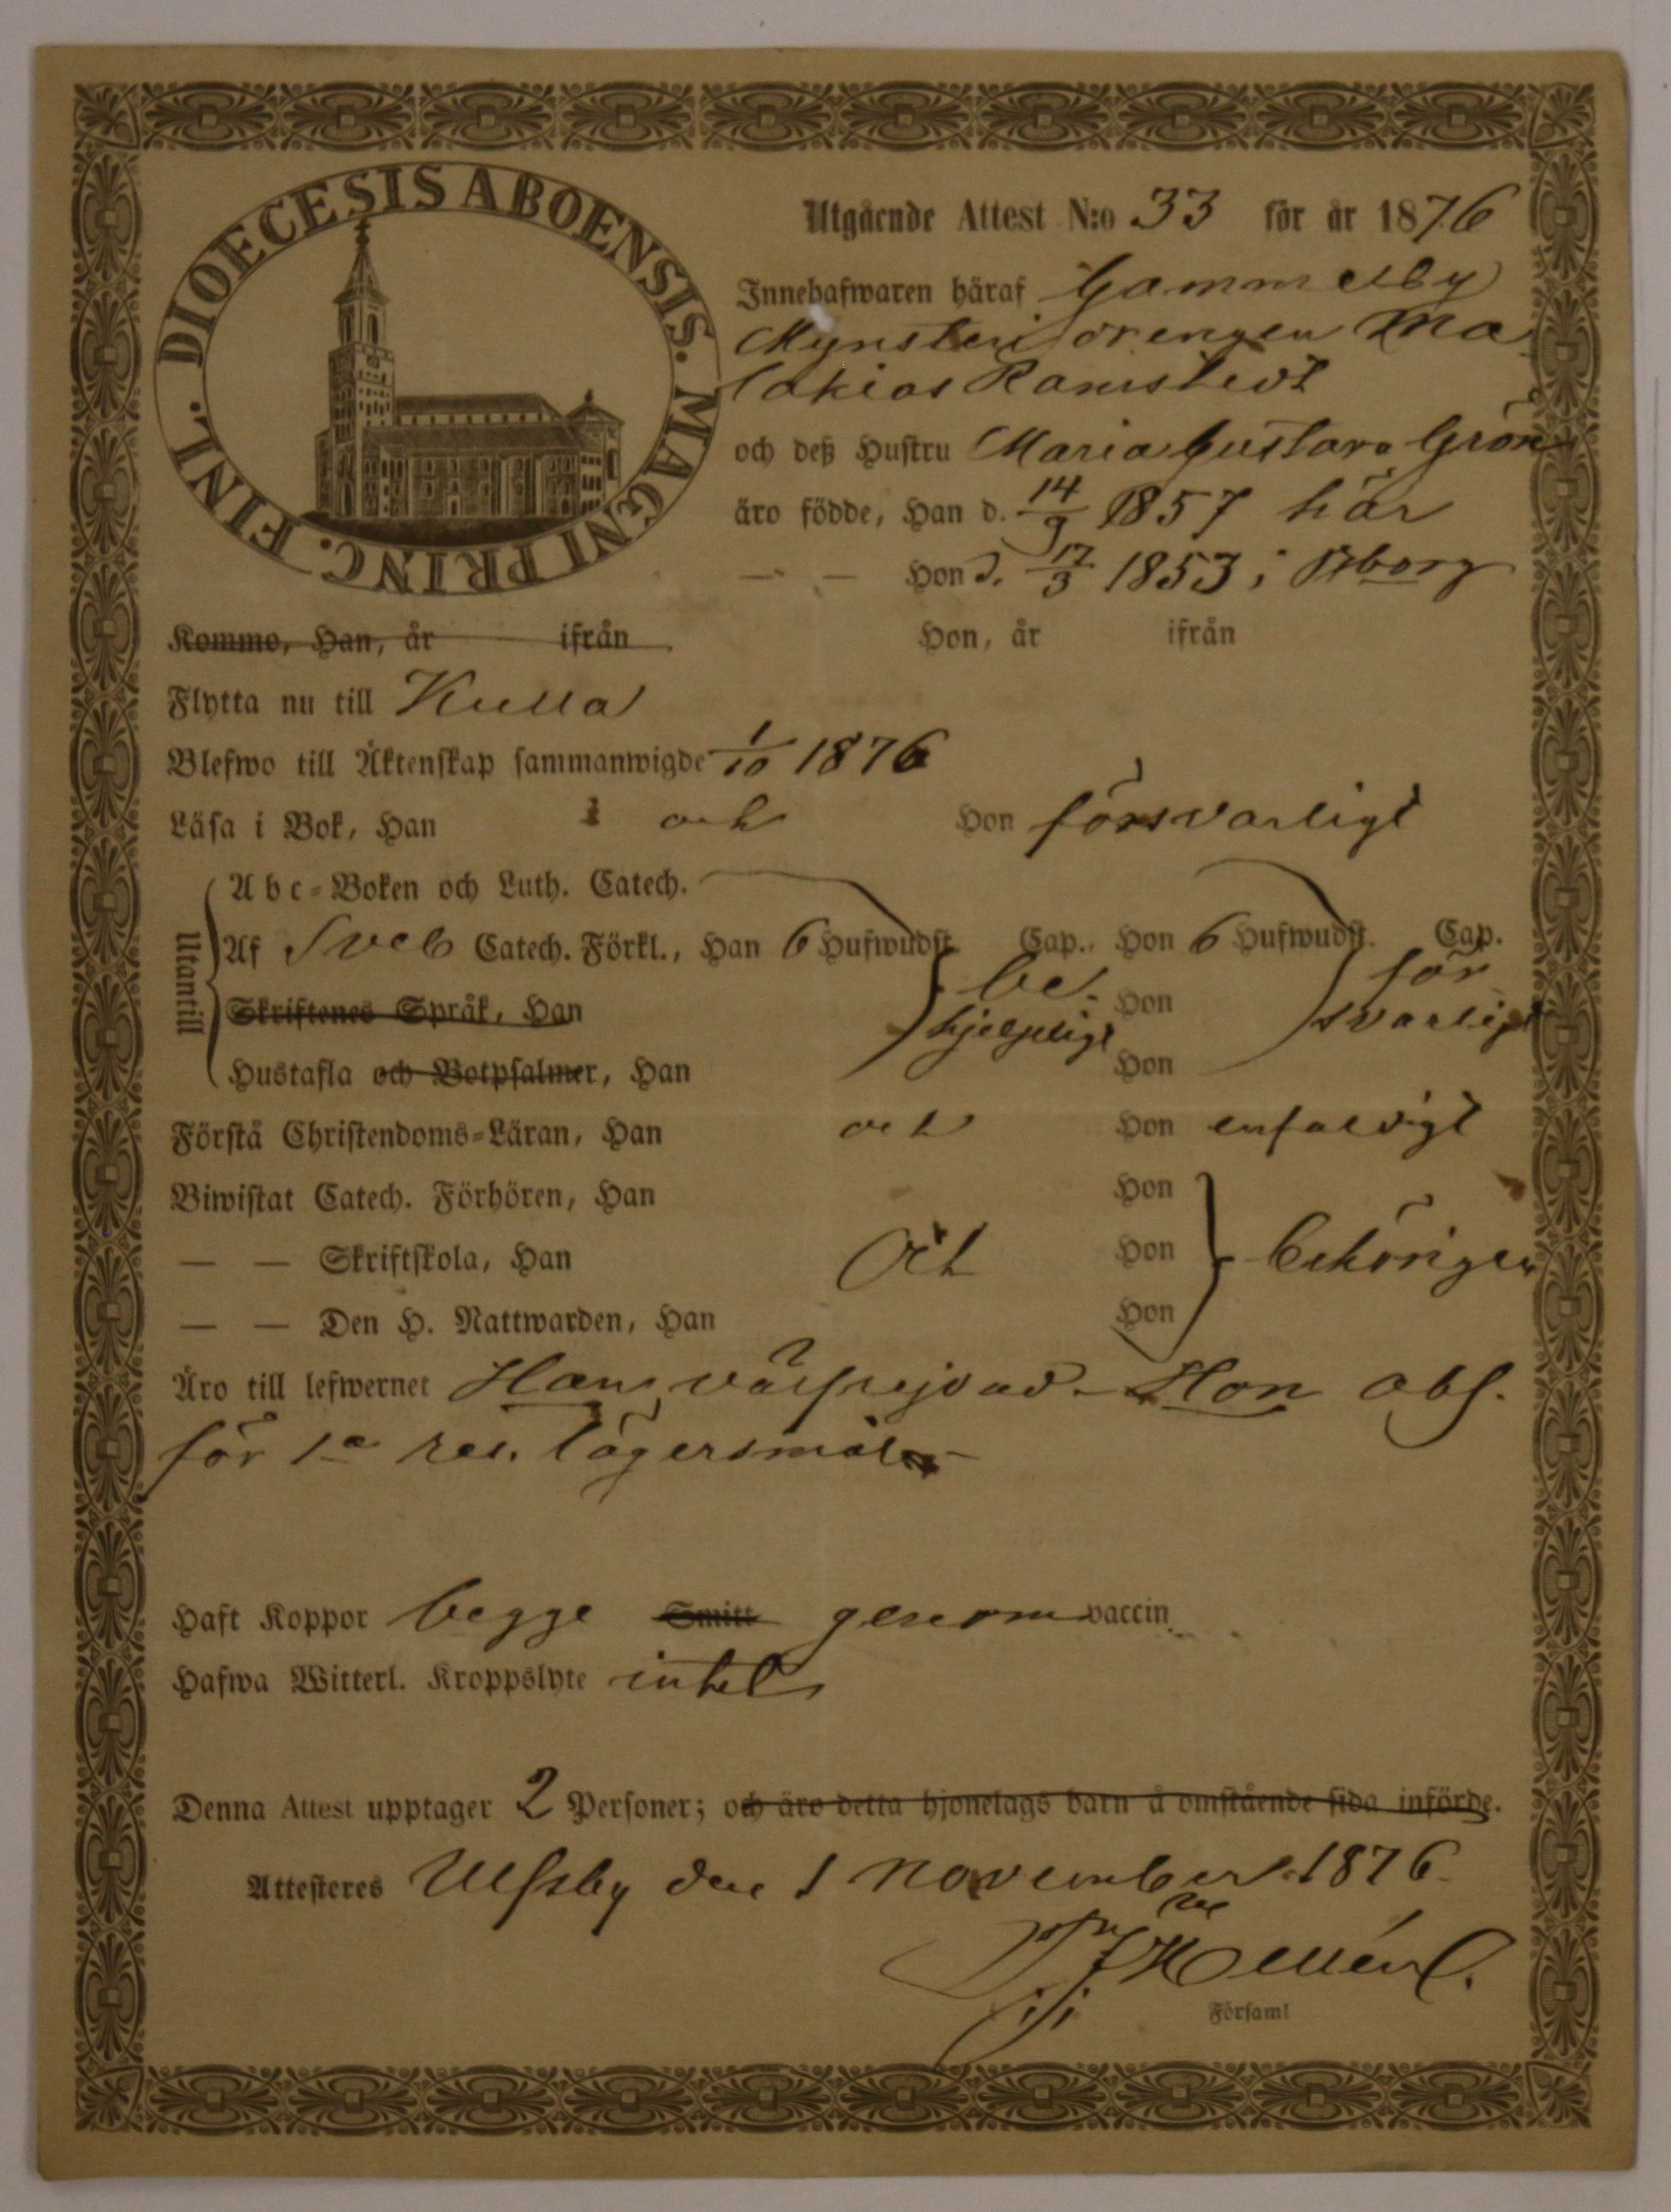 DIOECESIS ABOENSIS. MAGNI PRINC. FINL.
Utgående Attest N:o 33 för år 1876
Innehafwaren häraf Gammelby
drengen Ma
lakias Ramstedt
och deß Hustru Maria Gustava Grön
äro födde, Han d. 14/9 1857 här
— — Hon d. 17/3 1853 i Åborg
Komme, Han, år ifrån Hon, år ifrån
Flytta nu till Kulla
Blefwo till Äktenskap sammanwigde 1/10 1876
Läsa i Bok, Han och Hon försvarligt
Utantill
Abc-Boken och Luth. Catech.
Af Sveb Catech. Förkl., Han 6 Hufwudst. Cap., Hon 6 Hufwudst. Cap.
be- för
Skriftenes Språk, Han Hon
hjelpligt svarligt
Hustafla och Botpsalmer, Han Hon
Förstå Christendoms-Läran, Han och Hon enfaldigt
Biwistat Catech. Förhören, Han Hon
— — Skriftskola, Han och Hon behörigen
— — Den H. Nattwarden, Han Hon
Äro till lefwernet Han välfrejdad - Hon abs.
för 1a res. lägersmål
Haft Koppor begge Smitt genom vaccin.
Hafwa Witterl. Kroppslyte intet
Denna Attest upptager 2 Personer; och äro detta hjonelags barn å omstående sida införde.
Attesteres Ulfsby den 1 November 1876
Hellén
Församl